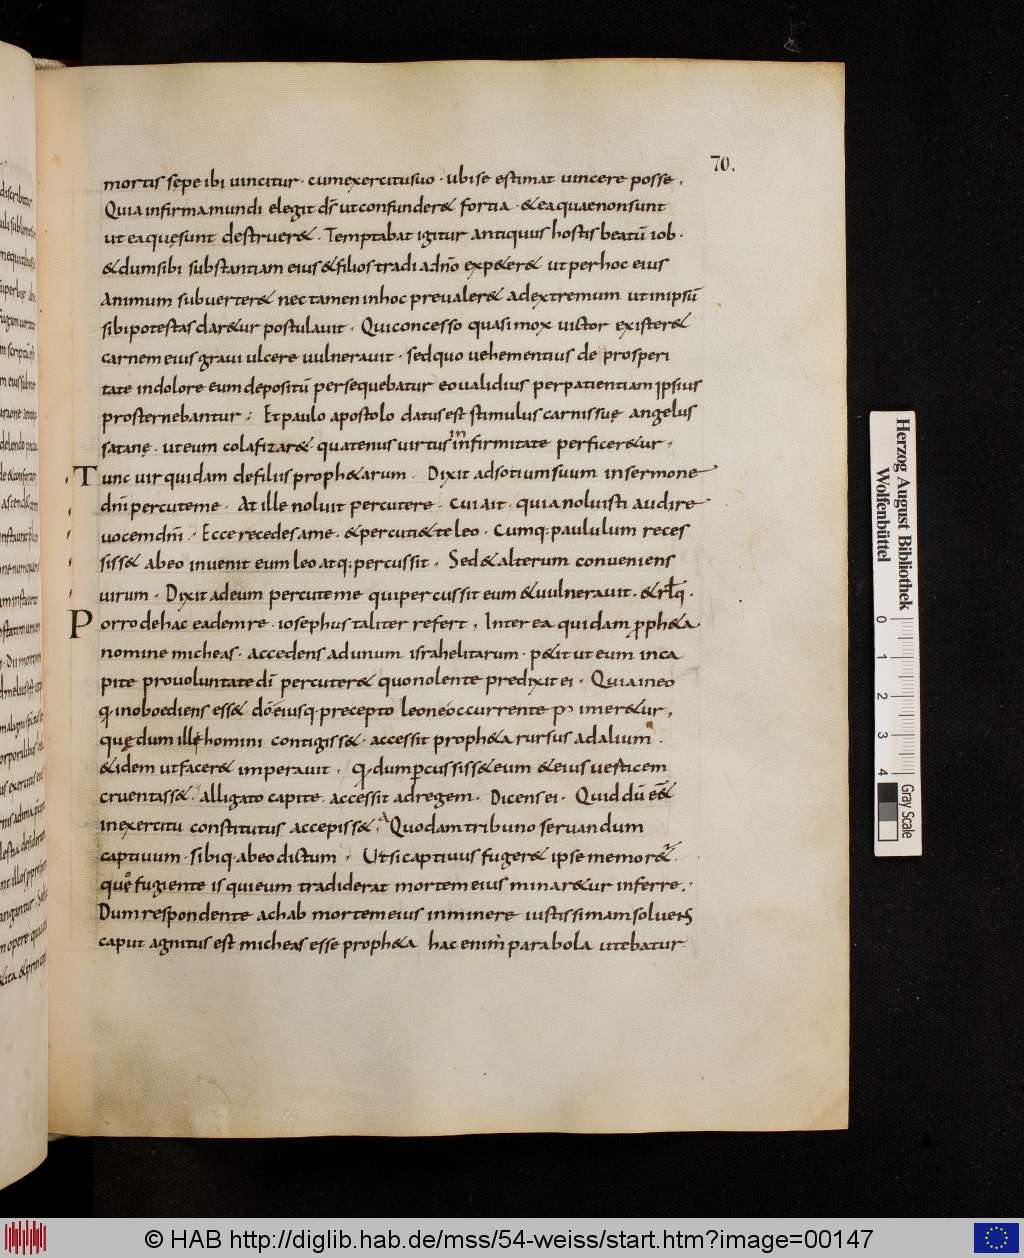 70.
mortis sepe ibi uincitur · cum exercitu suo · ubi se estimat uincere posse.
Quia infirma mundi elegit ds̄ ut confunder& fortia · & ea quae non sunt
ut ea quęsunt destruer& · Temptabat igitur antiquus hostis beatū iob ·
& dum sibi substantiam eius & filios tradi a dn̄o exp&er& ut per hoc eius
animum subuerter& nec tamen in hoc preualer& ad extremum ut in ipsū
sibi potestas dar&ur postulauit · Qui concesso quasi mox uictor exister&
carnem eius graui ulcere uulnerauit · sed quo uehementius de prosperi
tate in dolore eum depositū persequebatur eo ualidius per patientiam ipsius
prosternebantur ; Et paulo apostolo datus est stimulus carnis suę angelus
satanę · ut eum colafizar& · quatenus uirtus in infirmitate perficer&ur ·
Tunc uir quidam de filius proph&arum · Dixit ad sotium suum in sermone
dn̄i percute me · At ille noluit percutere · Cui ait · quia noluisti audire
uocem dn̄i · Ecce recedes a me · & percuti& te leo · Cumq: paululum reces
siss& ab eo inuenit eum leo atq: percussit · Sed & alterum conueniens
uirum · Dixit ad eum percute me qui percussit eum & uulnerauit · & rłq ·
Porro de hac eadem re · iosephus taliter refert · Interea quidam ꝓph&a
nomine micheas · accedens ad unum israhelitarum · p&it ut eum in ca
pite pro uoluntate dī percuter& quo nolente predixit ei · Quia in eo
q inoboediens ess& dō eiusq · precepto leone occurrente
quę dum ille homini contigiss& · accessit proph&a rursus ad alium ·
& idem ut facer& imperauit · q dum ꝑcussiss& eum & eius uesticem
cruentass& · alligato capite · accessit ad regem · Dicens ei · Quid dū eē&
in exercitu constitutus accepiss& · A Quodam tribuno seruandum
captiuum · sibiq · ab eo dictum · Ut si captiuus fuger& ipse memor&
fugiente is qui eum tradiderat mortem eius minar&ur inferre ·
Dum respondente achab mortem eius inminere iustissimam soluens
caput agnitus est micheas esse proph&a hac enim parabola utebatur
Herzog August Bibliothek
Wolfenbüttel
0 1 2 3 4
Gray Scale
© HAB http://diglib.hab.de/mss/54-weiss/start.htm?image=00147